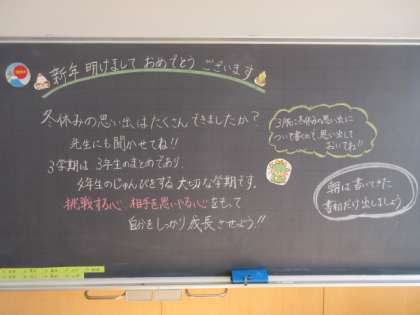 新年 明けまして おめでとう ございます
冬休みの思い出はたくさんできましたか？
先生にも聞かせてね!!
3学期は 3年生のまとめであり、
4年生のじゅんびをする 大切な学期です。
挑戦する心、相手を思いやる心をもって
自分をしっかり成長させよう!!
冬休みの思い出に
ついて書くので、思い出して
おいてね!!
朝は書いてきた
書初だけ出しましょう